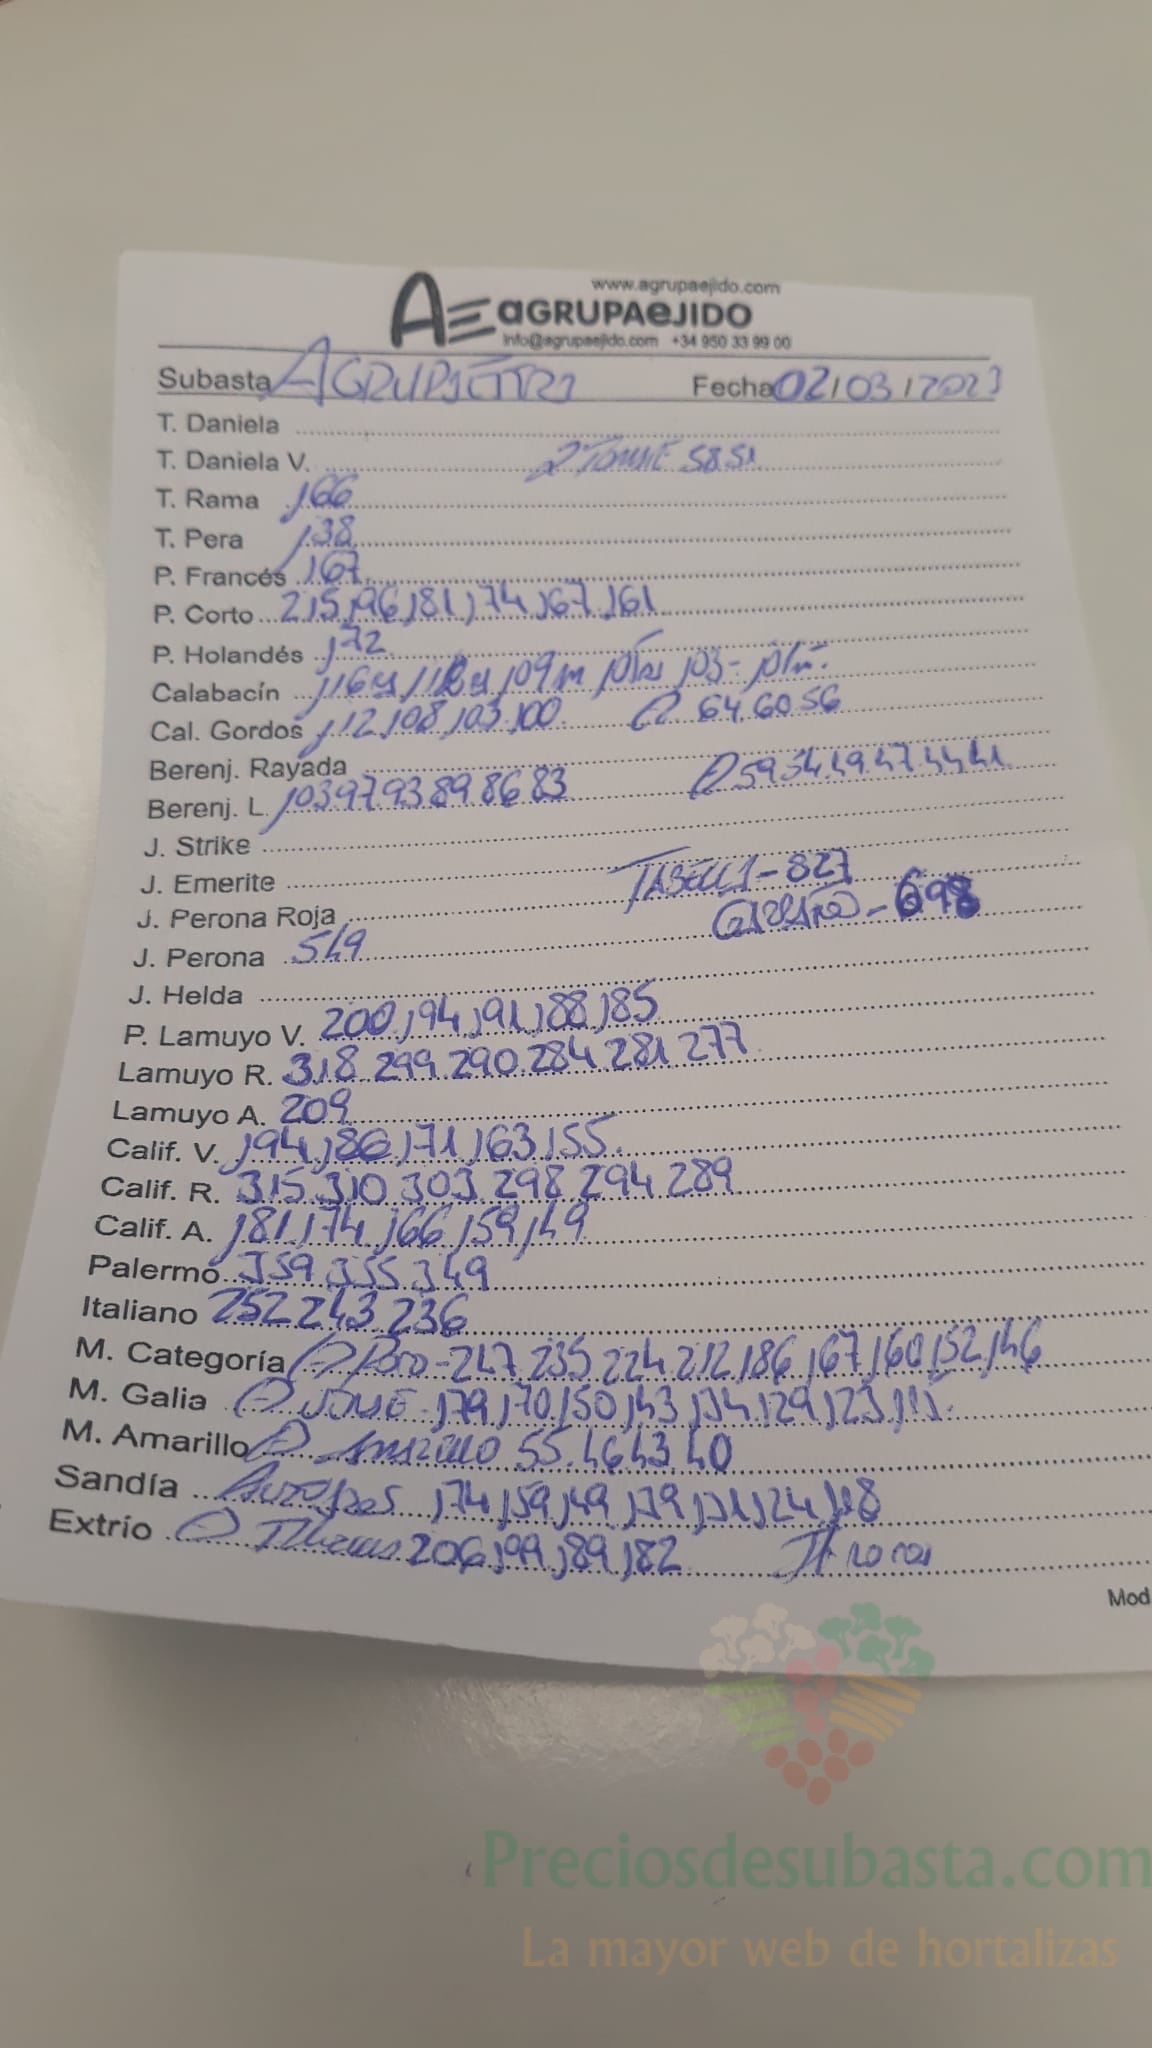 www.agrupaejido.com
AE aGRUPAeJIDO
info@agrupaejido.com +34 950 33 99 00
Subasta Fecha 02/03/2023
T. Daniela
T. Daniela V. 58 51
T. Rama 166
T. Pera 138
P. Francés 167
P. Corto 215 196 181 174 167 161
P. Holandés 172
Calabacín 116 118 109
Cal. Gordos 112 108 103 100 64 60 56
Berenj. Rayada
Berenj. L. 103 97 93 89 86 83 59 54 49 47 44 41
J. Strike
J. Emerite
J. Perona Roja TABELLA - 827
J. Perona 549 GARRAFÓ - 698
J. Helda
P. Lamuyo V. 200 194 191 188 185
Lamuyo R. 318 299 290 284 281 277
Lamuyo A. 209
Calif. V. 194 186 171 163 155
Calif. R. 315 310 303 298 294 289
Calif. A. 181 174 166 159 149
Palermo 359 355 349
Italiano 252 243 236
M. Categoría Rojo - 247 235 224 212 186 167 160 152 146
M. Galia - 179 170 150 143 134 129 123 111
M. Amarillo Amarillo 55 46 43 40
Sandía 174 159 149 139 131 124 118
Extrío 206 199 189 182
Mod
Preciosdesubasta.com
La mayor web de hortalizas